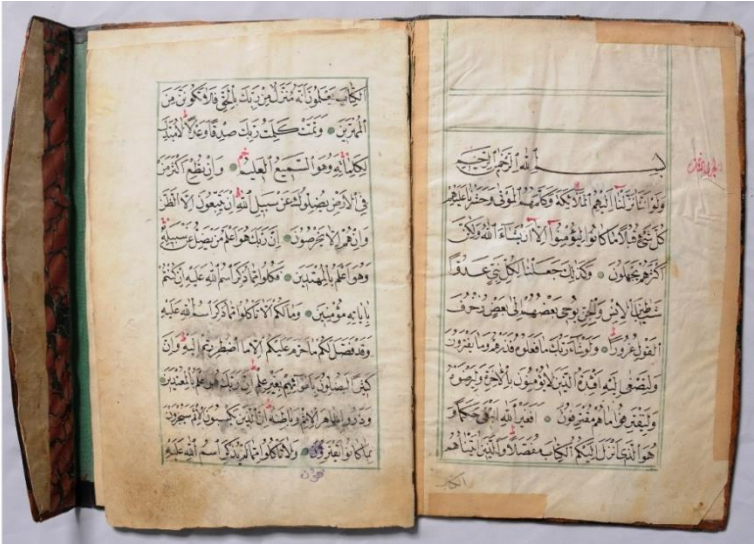 بسم الله الرحمن الرحيم
ولو اننا نزلنا اليهم الملائكة وكلمهم الموتى وحشرنا عليهم
كل شيء قبلا ما كانوا ليؤمنوا الا ان يشاء الله ولكن
اكثرهم يجهلون وكذلك جعلنا لكل نبي عدوا
شياطين الانس والجن يوحي بعضهم الى بعض زخرف
القول غرورا ولو شاء ربك ما فعلوه فذرهم وما يفترون
ولتصغى اليه افئدة الذين لا يؤمنون بالاخرة وليرضوه
وليقترفوا ما هم مقترفون افغير الله ابتغي حكما و
هو الذي انزل اليكم الكتاب مفصلا والذين اتيناهم
الكتاب
الكتاب يعلمون انه منزل من ربك بالحق فلا تكونن من
الممترين وتمت كلمت ربك صدقا وعدلا لا مبدل
لكلماته وهو السميع العليم وان تطع اكثر من
في الارض يضلوك عن سبيل الله ان يتبعون الا الظن
وان هم الا يخرصون ان ربك هو اعلم من يضل عن سبيله
وهو اعلم بالمهتدين فكلوا مما ذكر اسم الله عليه ان كنتم
باياته مؤمنين وما لكم الا تاكلوا مما ذكر اسم الله عليه
وقد فصل لكم ما حرم عليكم الا ما اضطررتم اليه وان
كثيرا ليضلون باهوائهم بغير علم ان ربك هو اعلم بالمعتدين
وذروا ظاهر الاثم وباطنه ان الذين يكسبون الاثم سيجزون
بما كانوا يقترفون ولا تاكلوا مما لم يذكر اسم الله عليه